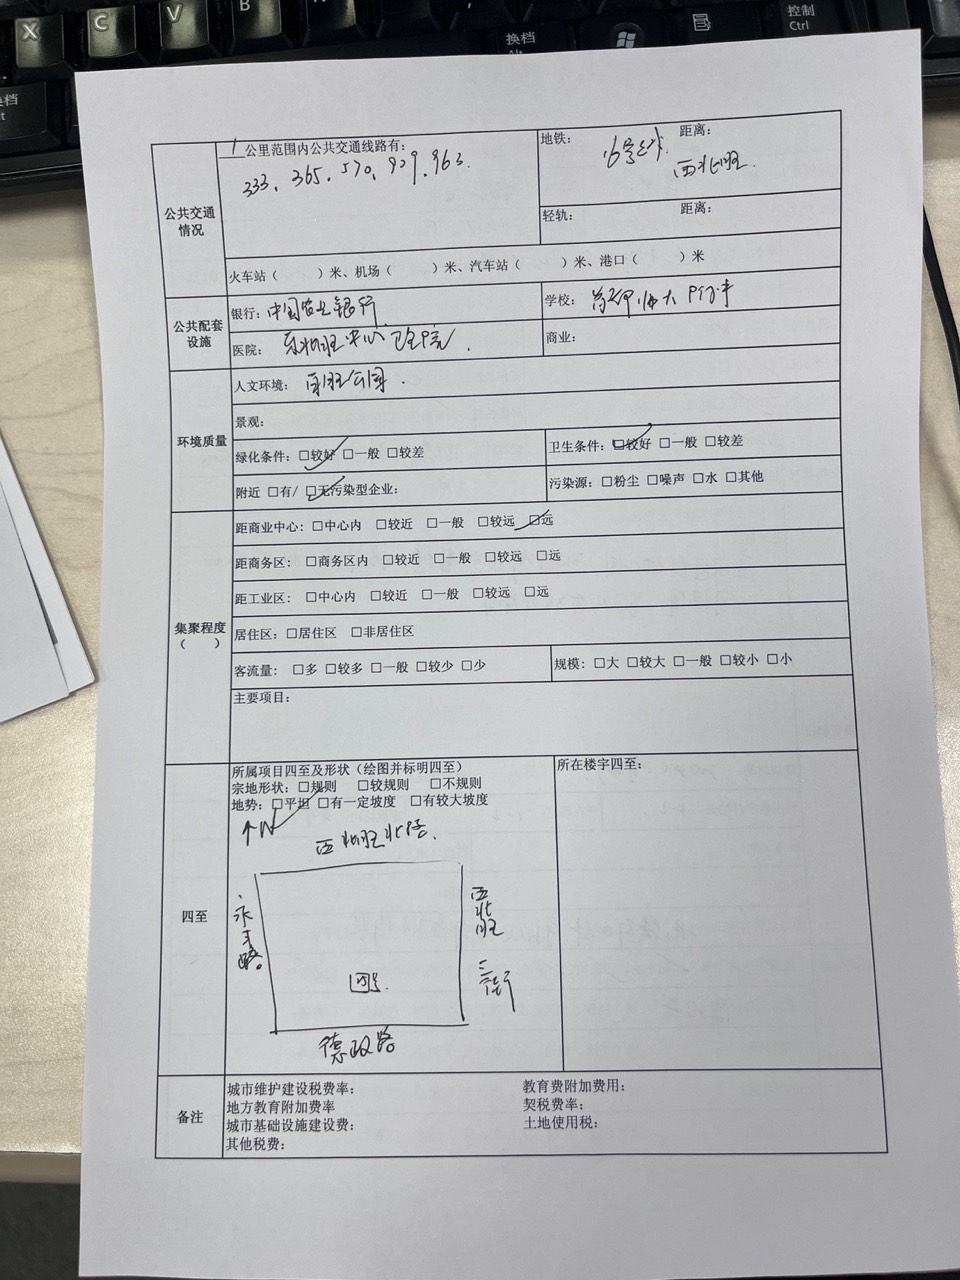 X C V
换档 Alt
控制 Ctrl
换档
公共交通情况
1 公里范围内公共交通线路有:
333、365、570、909、963.
地铁: 16号线 距离:
西北旺.
轻轨: 距离:
火车站( )米、机场( )米、汽车站( )米、港口( )米
公共配套设施
银行: 中国农业银行
学校: 首都师大附中
医院: 东北旺中心卫生院.
商业:
环境质量
人文环境: 百旺公园.
景观:
绿化条件: □较好 □一般 □较差
卫生条件: □较好 □一般 □较差
附近 □有/ □无污染型企业:
污染源: □粉尘 □噪声 □水 □其他
集聚程度
( )
距商业中心: □中心内 □较近 □一般 □较远 □远
距商务区: □商务区内 □较近 □一般 □较远 □远
距工业区: □中心内 □较近 □一般 □较远 □远
居住区: □居住区 □非居住区
客流量: □多 □较多 □一般 □较少 □少
规模: □大 □较大 □一般 □较小 □小
主要项目:
四至
所属项目四至及形状(绘图并标明四至)
所在楼宇四至:
宗地形状: □规则 □较规则 □不规则
地势: □平坦 □有一定坡度 □有较大坡度
↑N
西北旺北路.
永丰路。
西北旺三街
德政路
备注
城市维护建设税费率: 教育费附加费用:
地方教育附加费率 契税费率:
城市基础设施建设费: 土地使用税:
其他税费: